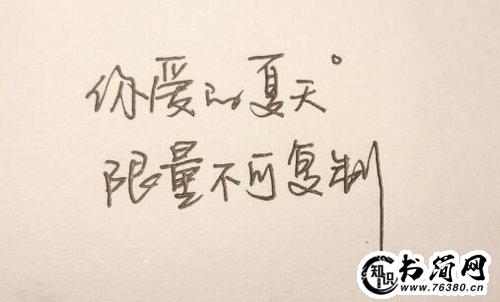 你爱的夏天。
限量不可复制
知识 书简网
www.76380.cn